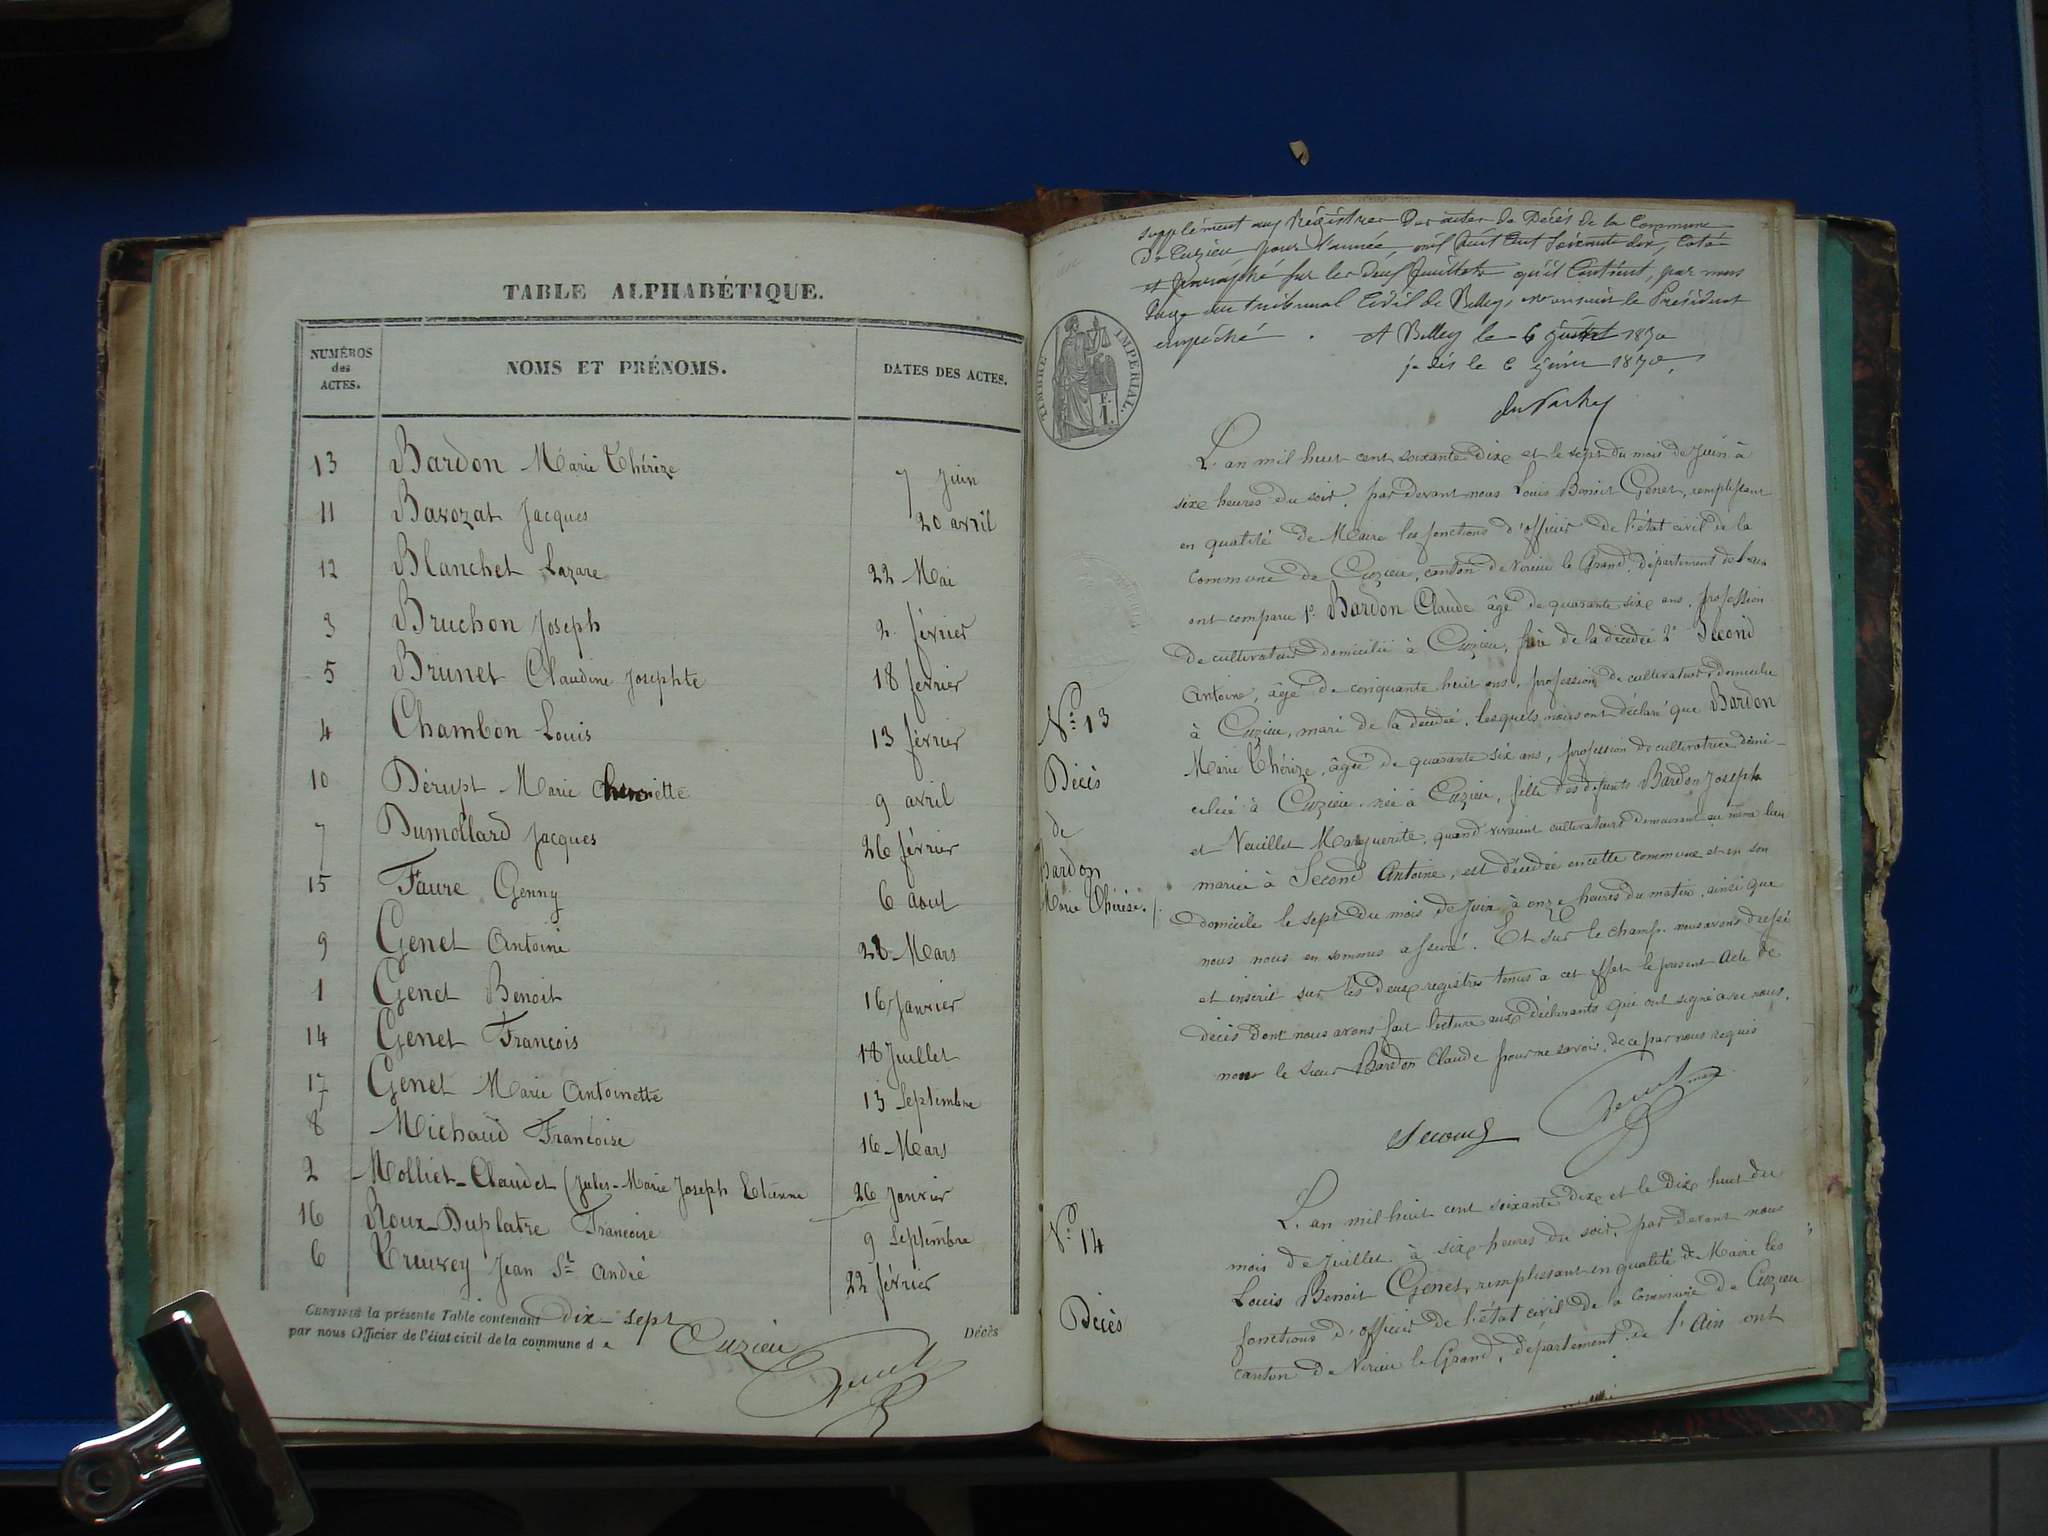 TABLE ALPHABÉTIQUE.
NUMÉROS des ACTES. NOMS ET PRÉNOMS. DATES DES ACTES.
13 Bardon Marie Thérèze 7 Juin
11 Bavozat Jacques 20 avril
12 Blanchet Lazare 22 Mai
3 Bruchon Joseph 2 février
5 Brunet Claudine Josephte 18 février
4 Chambon Louis 13 février
10 Dérupt Marie 9 avril
7 Dumollard Jacques 26 février
15 Faure Genny 6 aout
9 Genet Antoine 28 Mars
1 Genet Benoit 16 Janvier
14 Genet François 18 Juillet
17 Genet Marie Antoinette 13 Septembre
8 Michaud Françoise 16 Mars
2 Molliet-Claudet (Jules-Marie Joseph Etienne 26 Janvier
16 Roux-Duplatre Françoise 9 Septembre
6 Truvey Jean St André 22 février
CERTIFIÉ la présente Table contenant dix-sept Décès
par nous Officier de l'état civil de la commune de Cuzieu
Genet
supplément aux Régistres des actes de Décès de la Commune
De Cuzieu pour l'année mil huit cent soixante dix, Coté
et paraphé sur les deux feuillets qu'il contient, par nous
Juge au tribunal Civil de Belley, monsieur le Président
empêché. A Belley le 6 1870
je dis le 6 juin 1870.
TIMBRE IMPÉRIAL.
L'an mil huit cent soixante dixe et le sept du mois de Juin à
sixe heures du soir, par devant nous Louis Benoit Genet, remplissant
en qualité de Maire les fonctions d'officier de l'état civil de la
Commune de Cuzieu, canton de Virieu le Grand, département de l'ain
ont comparu 1° Bardon Claude âgé de quarante sixe ans, profession
de cultivateur domicilié à Cuzieu, frère de la décédée 2° Second
Antoine, âgé de cinquante huit ans, profession de cultivateur domicilié
N° 13
à Cuzieu, mari de la décédée, lesquels nous ont déclaré que Bardon
Marie Thérèze, âgée de quarante six ans, profession de cultivatrice domi-
Décès
ciliée à Cuzieu née à Cuzieu, fille des défunts Bardon Joseph
de
et Veuillet Marguerite, quand vivaient cultivateurs demeurant au même lieu
Bardon
mariée à Second Antoine, est décédée en cette commune et en son
Marie Thérèse.
domicile le sept du mois de Juin à onze heures du matin, ainsi que
nous nous en sommes assuré. Et sur le champ, nous avons dressé
et inscrit sur les deux registres tenus à cet effet le présent acte de
décès dont nous avons fait lecture aux déclarants qui ont signé avec nous,
non le sieur Bardon Claude pour ne savoir, de ce par nous requis
Second Genet maire
L'an mil huit cent soixante dixe et le dixe huit du
N° 14
mois de Juillet à sixe heures du soir, par devant nous
Louis Benoit Genet, remplissant en qualité de Maire les
Décès
fonctions d'officier de l'état civil de la commune de Cuzieu
canton de Virieu le Grand, département de l'Ain ont